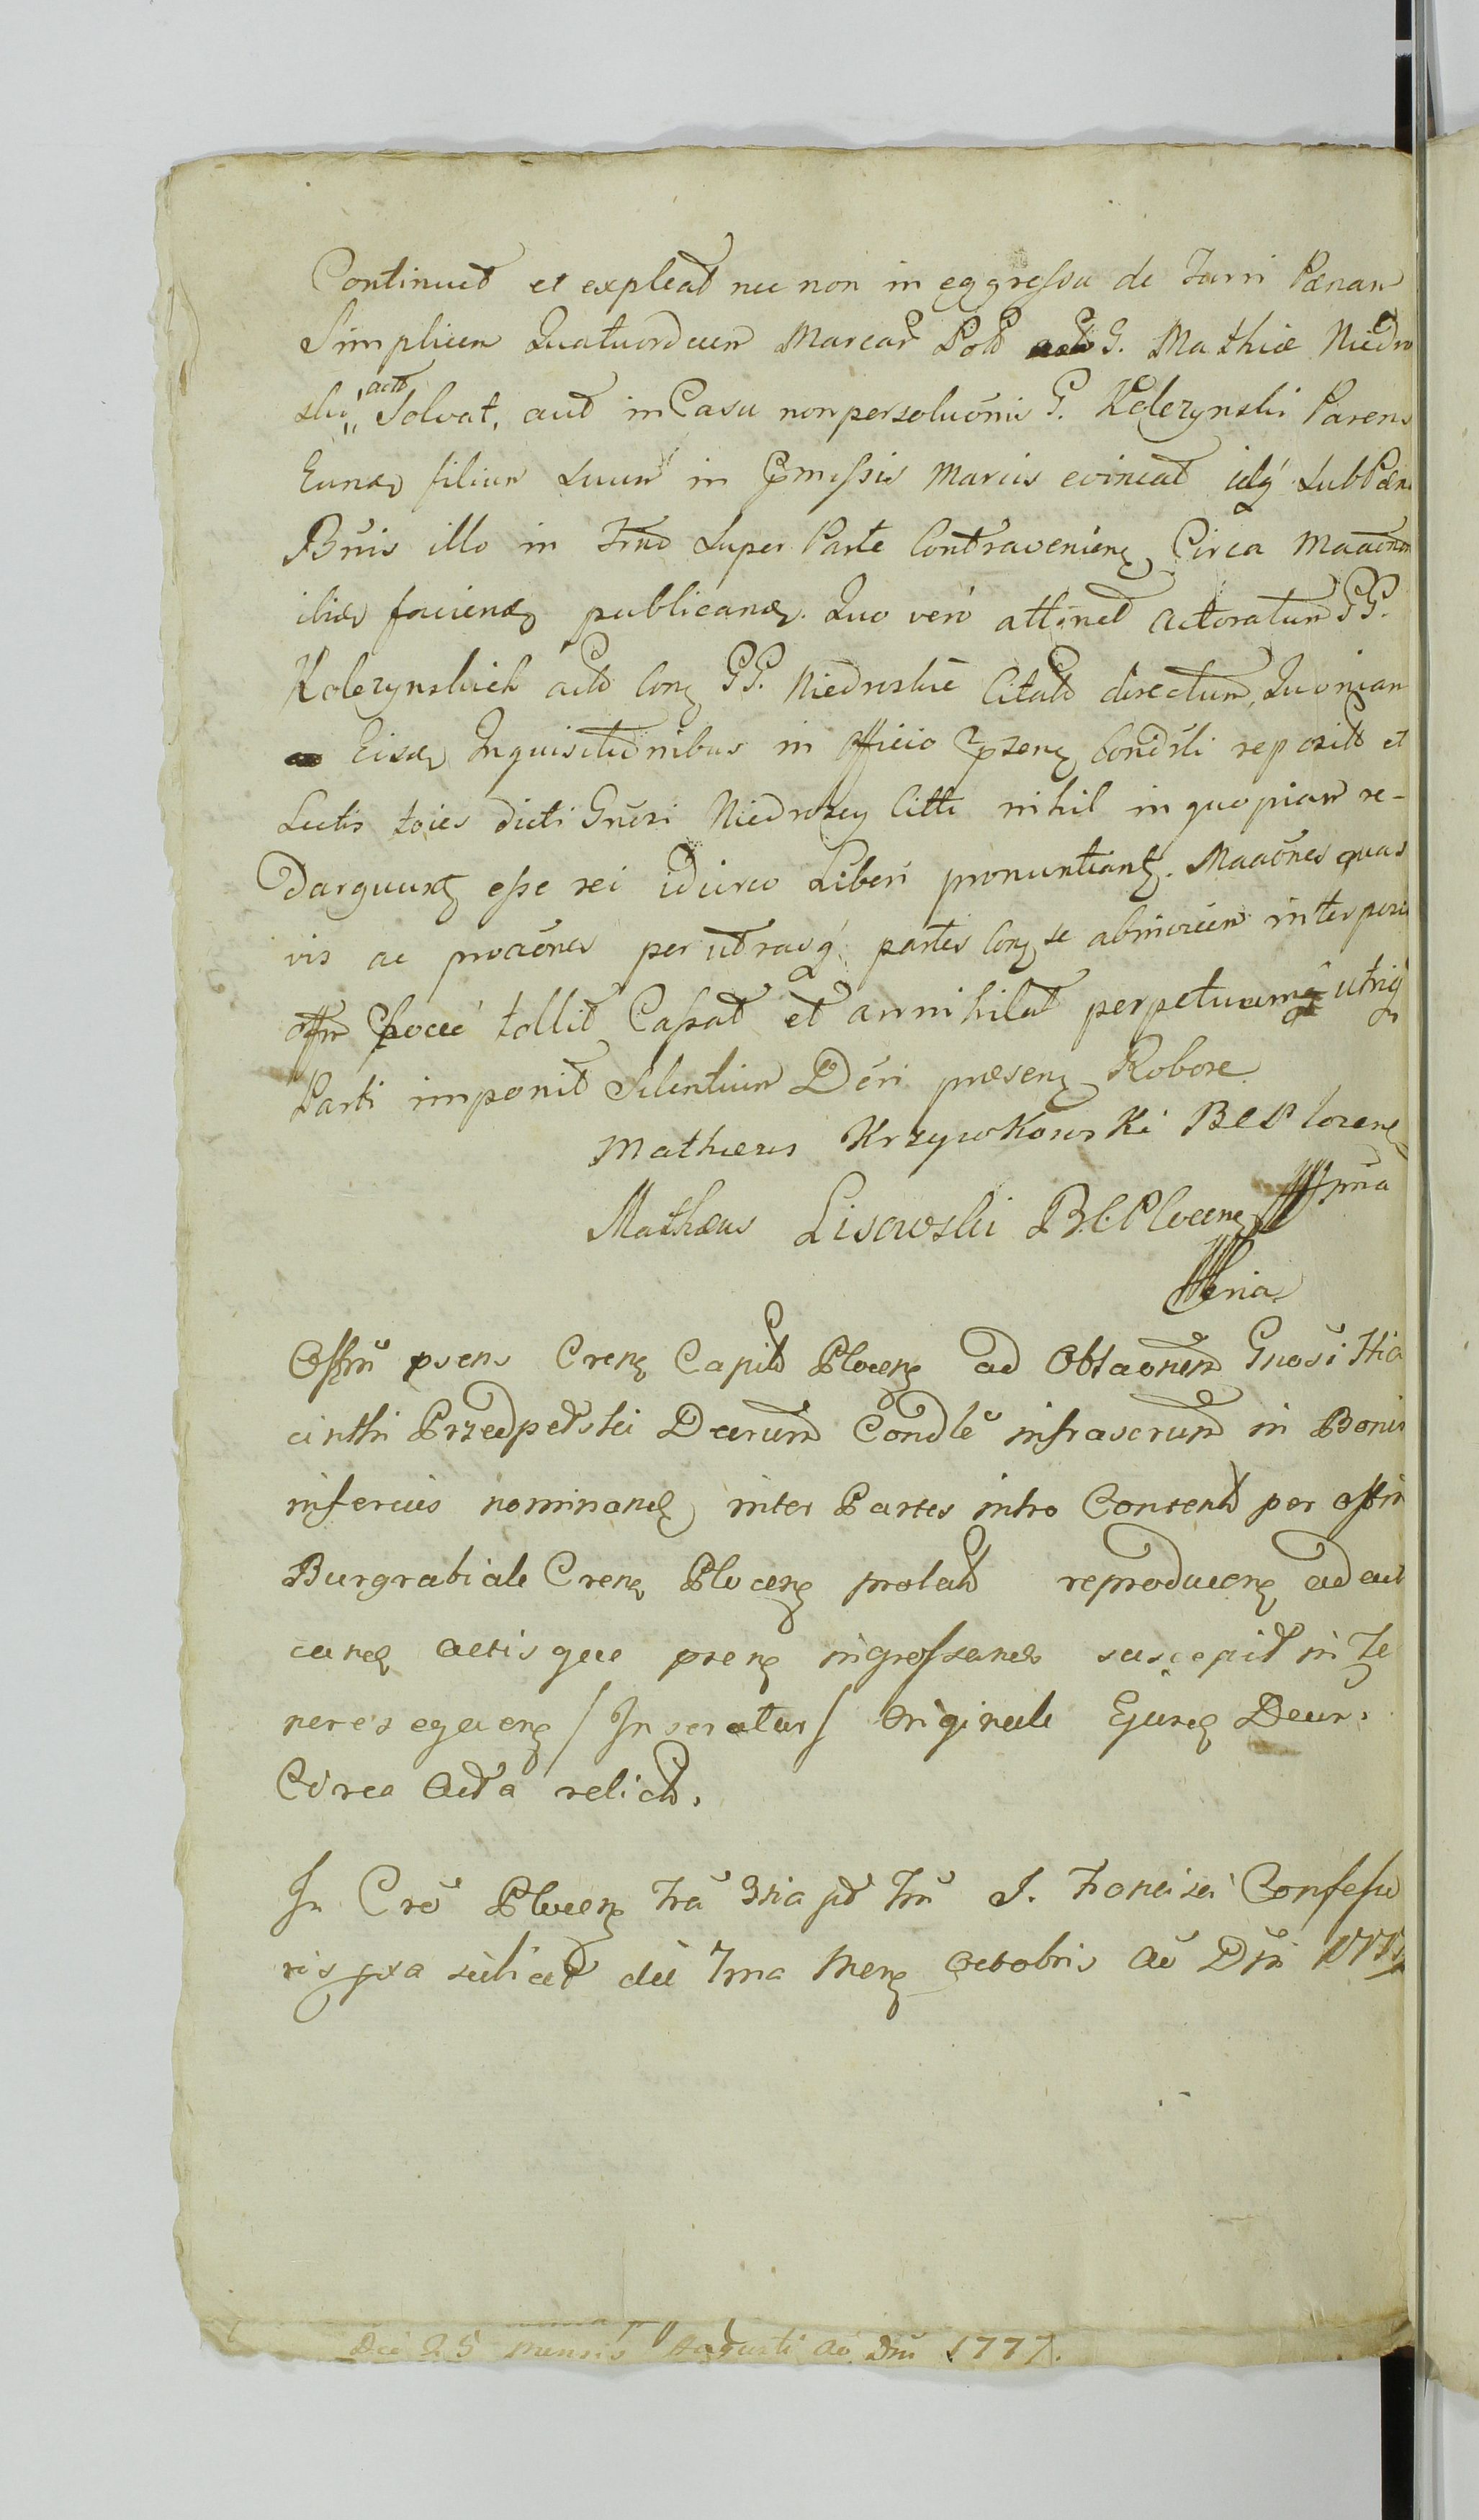 Continuet et expleat nec non in eggressu de Turri Pænam
Simplicem Quatuordecim Marcar Pold G. Mathiæ Niedro
ski actt Solvat, aut in Casu non persoluōnis G. Kolczynski Parens
Eund filium suum in Pmissis Marcis evincat idq sub Pæn
Būis illo in Trno super Parte Contravenien Circa
ibid faciend publicand. Quo vero attinet actoratum GG.
Kolczynskich actt Con GG. Niedroskie Citatt directum, Quoniam
Eisd Inquisitionibus in Officio pzen Condsti repositt et
Lectis toies dicti Gnēsi Niedrozcy Citti nihil in quopiam re-
darguunt esse rei idcirco Liberi pronuntiant. Maaōnes quas
vis ac proaōnes per utrasq partes Con se abinvicem interposi
offm hocce tollit Cassat et annihilat perpetuumq utriq
Parti imponit Silentium Dēri præsen Robore
Matheus Krzywkowski B C Plocen
mpria
Mathæus Lisowski B.C. Plocen
mpria
Offm psens Cren Capitt Plocen ad Obtaonem Gnosi Hia
cinthi Przedpełski Decrum Condle infrascrum in Bonis
inferius nominand inter Partes intro Contentt per offm
Burgrabiale Cren Plocen prolatt reproducen ad act
cand actisque pren ingrossand suscepit in Te
nere seqaen / Inseratur / Originale Ejusd Decr.
Circa Acta relictt.
In Cro Plocen Fra 3tia pt Fm S. Francisci Confesso
ris pxa scilicet die 7ma Men Octobris Ao Dni 1777
Die 25 Mensis Augusti Ao Dni 1777.